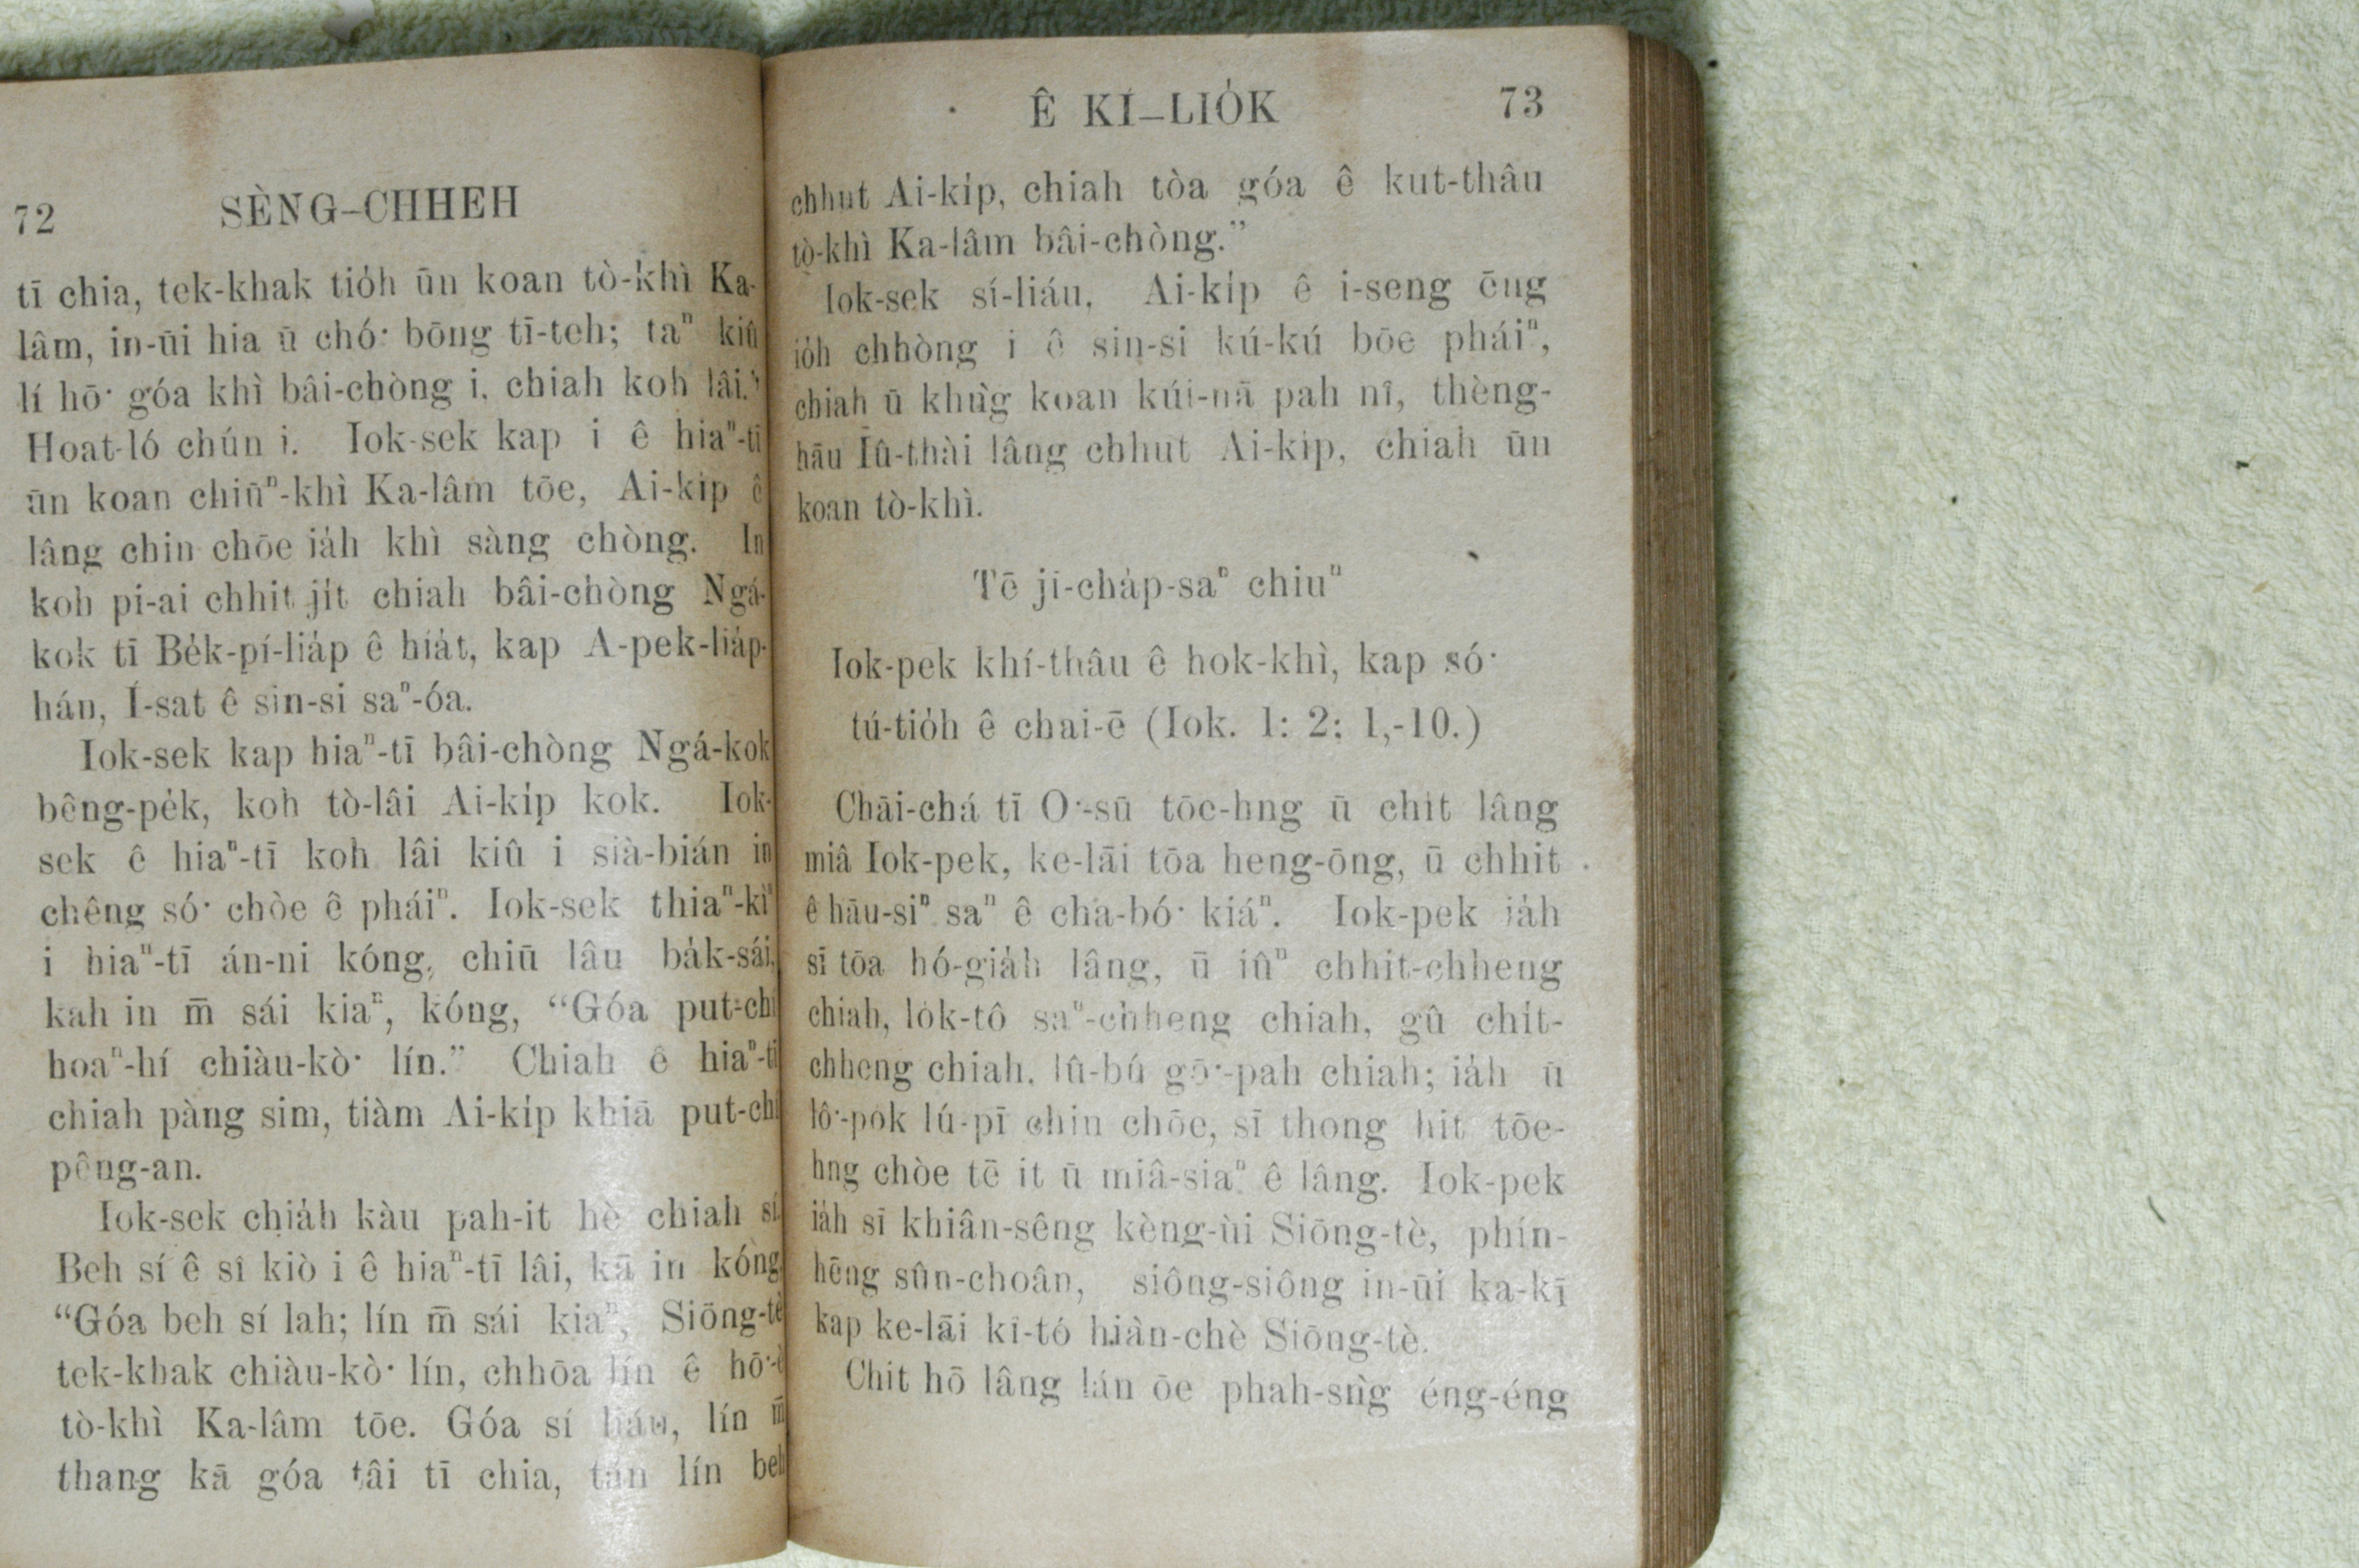 72 SÈNG–CHHEH
tī chia, tek-khak tio̍h ūn koan tò-khì Ka-
lâm, in-ūi hia ū chó͘ bōng tī-teh; taⁿ kiû
lí hō͘ góa khì bâi-chòng i, chiah koh lâi.”
Hoat-ló chún i. Iok-sek kap i ê hiaⁿ-tī
ūn koan chiūⁿ-khì Ka-lâm tōe, Ai-ki̍p ê
lâng chin chōe ia̍h khì sàng chòng. In
koh pi-ai chhit ji̍t chiah bâi-chòng Ngá-
kok tī Be̍k-pí-lia̍p ê hia̍t, kap A-pek-lia̍p-
hán, Í-sat ê sin-si saⁿ-óa.
Iok-sek kap hiaⁿ-tī bâi-chòng Ngá-kok
bêng-pe̍k, koh tò-lâi Ai-ki̍p kok. Iok-
sek ê hiaⁿ-tī koh lâi kiû i sià-bián in
chêng só͘ chòe ê pháiⁿ. Iok-sek thiaⁿ-kìⁿ
i hiaⁿ-tī án-ni kóng, chiū lâu ba̍k-sái,
kah in m̄ sái kiaⁿ, kóng, “Góa put-chí
hoaⁿ-hí chiàu-kò͘ lín.” Chiah ê hiaⁿ-tī
chiah pàng sim, tiàm Ai-ki̍p khiā put-chí
pêng-an.
Iok-sek chia̍h kàu pah-it hè chiah sí.
Beh sí ê sî kiò i ê hiaⁿ-tī lâi, kā in kóng,
“Góa beh sí lah; lín m̄ sái kiaⁿ, Siōng-tè
tek-khak chiàu-kò͘ lín, chhōa lín ê hō͘-è
tò-khì Ka-lâm tōe. Góa sí liáu, lín m̄
thang kā góa tâi tī chia, tán lín beh
Ê KÍ–LIO̍K 73
chhut Ai-ki̍p, chiah tòa góa ê kut-thâu
tò-khì Ka-lâm bâi-chòng.”
Iok-sek sí-liáu, Ai-ki̍p ê i-seng ēng
io̍h chhòng i ê sin-si kú-kú bōe pháiⁿ,
chiah ū khǹg koan kúi-nā pah nî, thèng-
hāu Iû-thài lâng chhut Ai-ki̍p, chiah ūn
koan tò-khì.
Tē jī-cha̍p-saⁿ chiuⁿ
Iok-pek khí-thâu ê hok-khì, kap só͘
tú-tio̍h ê chai-ē (Iok. 1: 2: 1,-10.)
Chāi-chá tī O͘-sū tōe-hng ū chi̍t lâng
miâ Iok-pek, ke-lāi tōa heng-ōng, ū chhit
ê hāu-siⁿ saⁿ ê cha-bó͘ kiáⁿ. Iok-pek ia̍h
sī tōa hó-gia̍h lâng, ū iûⁿ chhit-chheng
chiah, lo̍k-tô saⁿ-chheng chiah, gû chi̍t-
chheng chiah, lû-bú gō͘-pah chiah; ia̍h ū
lô͘-po̍k lú-pī chin chōe, sī thong hit tōe-
hng chòe tē it ū miâ-siaⁿ ê lâng. Iok-pek
ia̍h sī khiân-sêng kèng-ùi Siōng-tè, phín-
hēng sûn-choân, siông-siông in-ūi ka-kī
kap ke-lāi kî-tó hiàn-chè Siōng-tè.
Chit hō lâng lán ōe phah-sǹg éng-éng